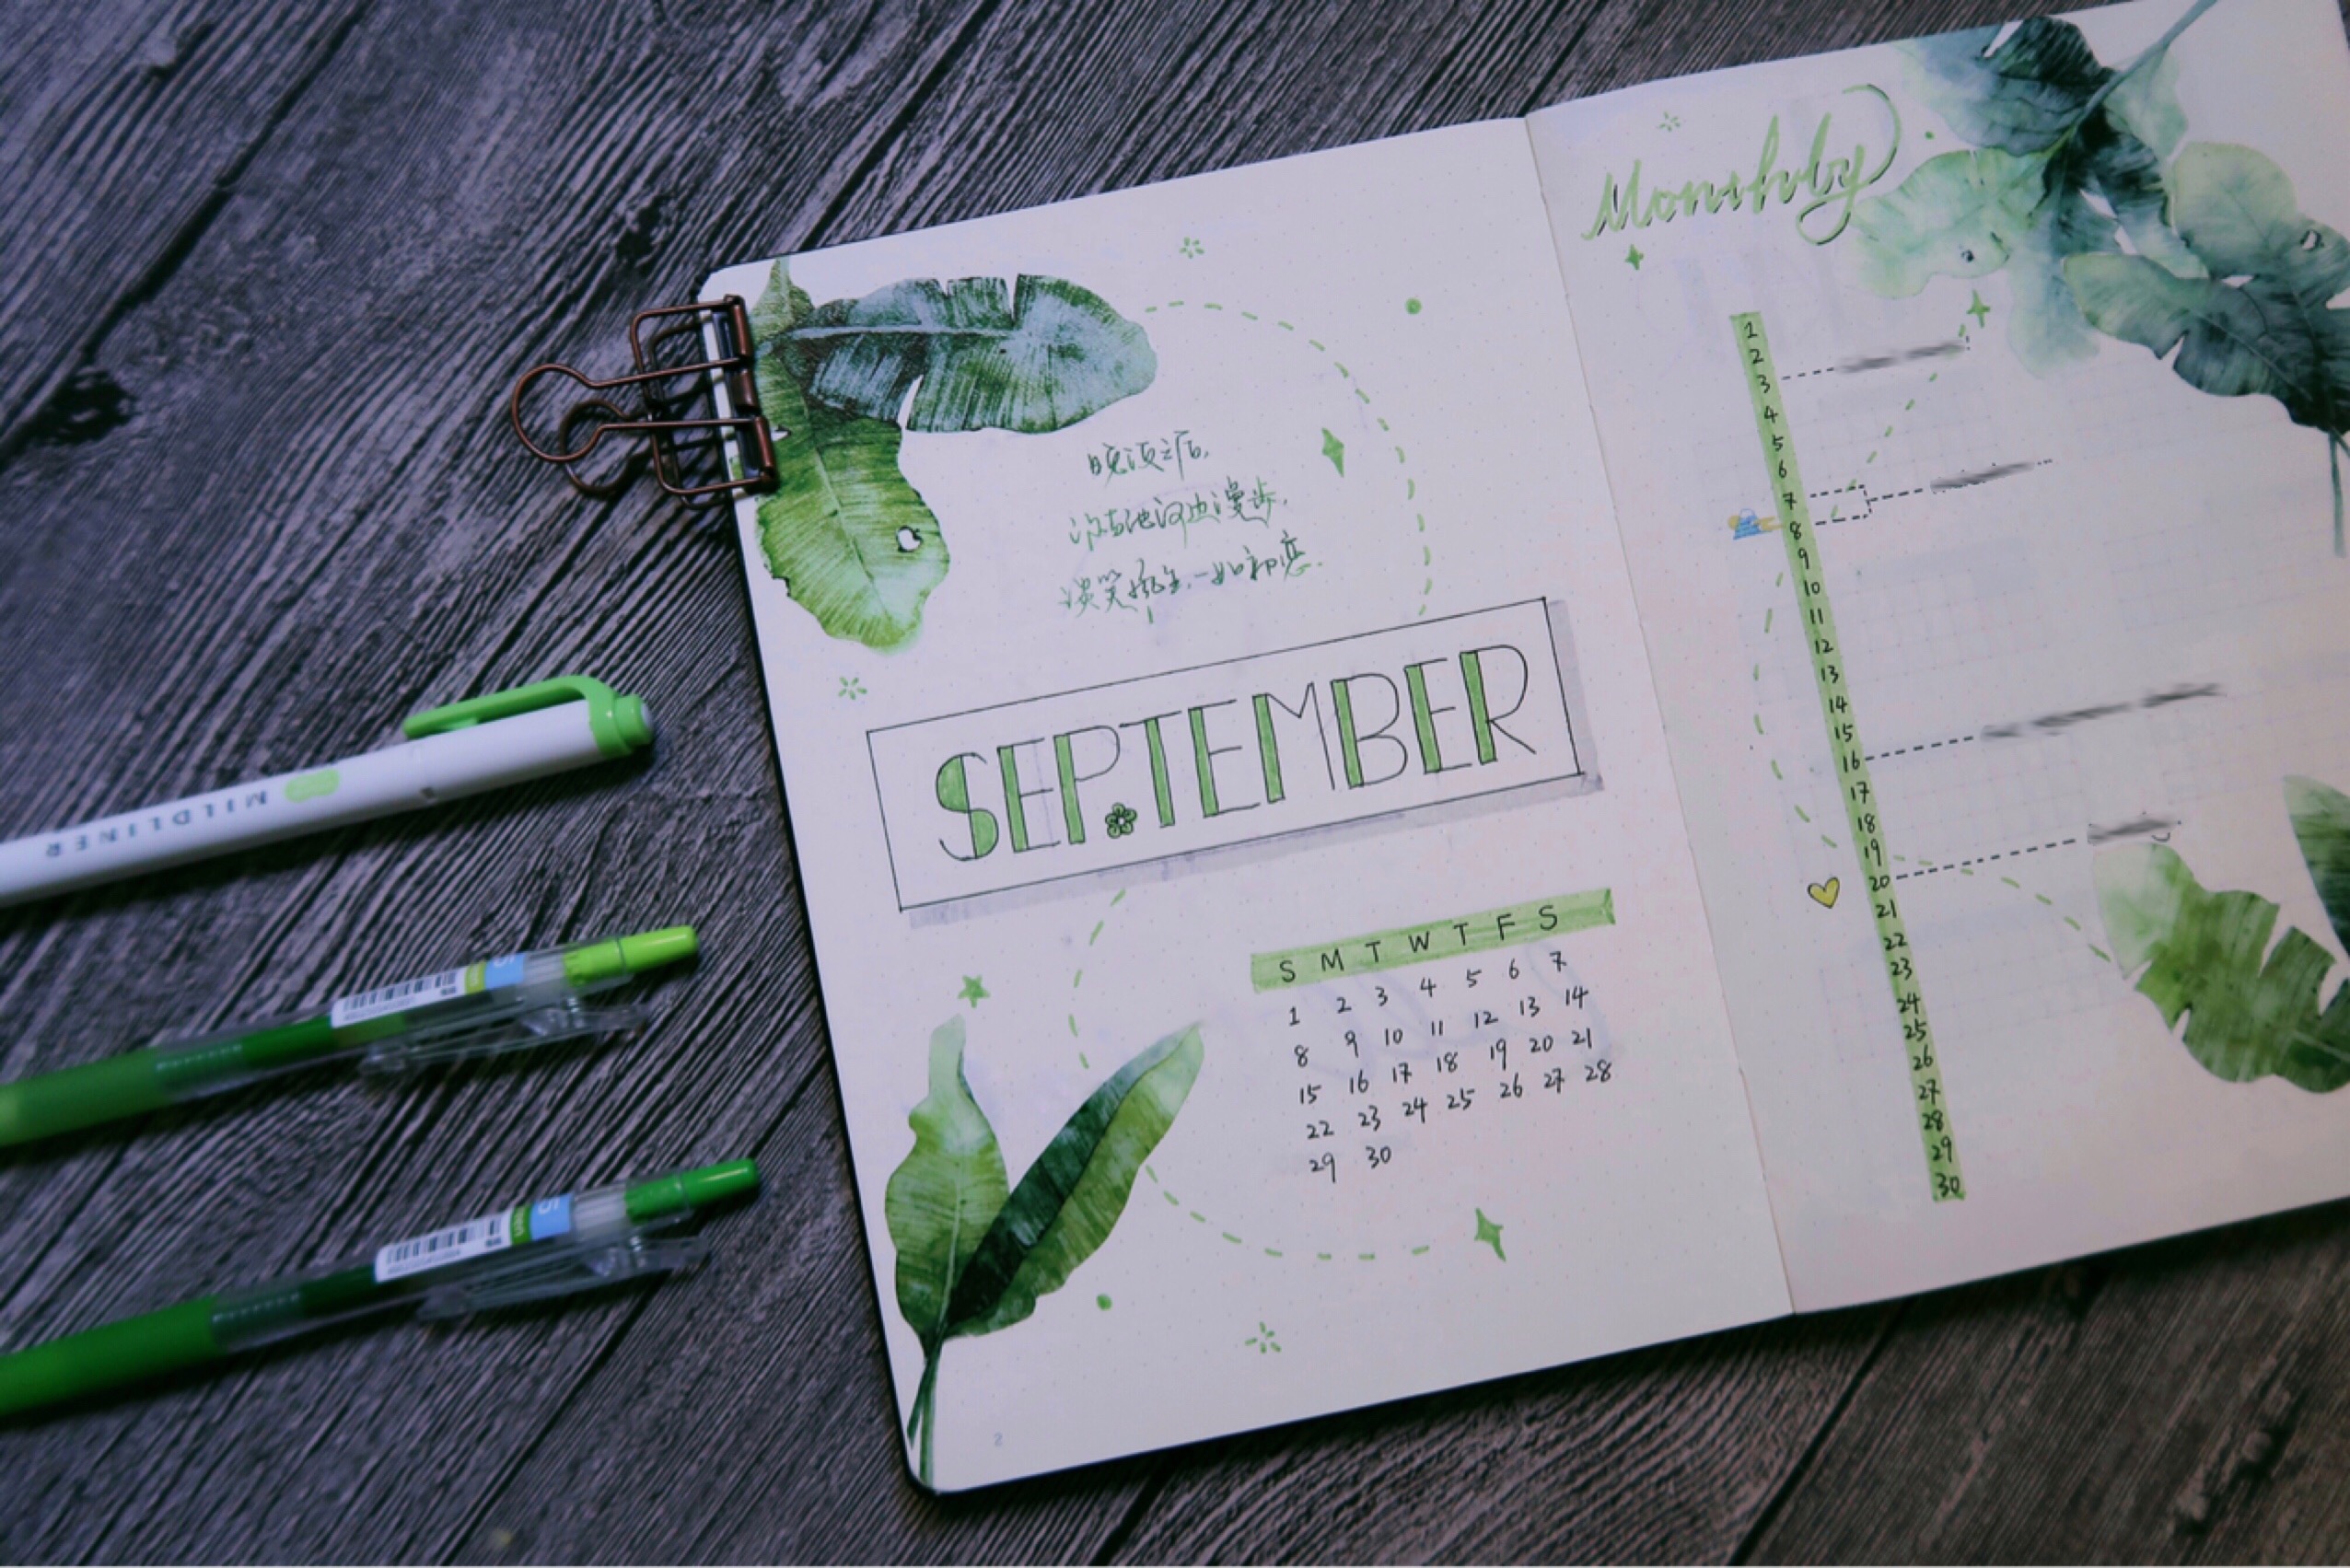 晚饭之后,
沿着池河边漫步,
谈笑风生,一如初恋.
SEPTEMBER
S M T W T F S
1 2 3 4 5 6 7
8 9 10 11 12 13 14
15 16 17 18 19 20 21
22 23 24 25 26 27 28
29 30
2
Monthly
1
2
3
4
5
6
7
8
9
10
11
12
13
14
15
16
17
18
19
20
21
22
23
24
25
26
27
28
29
30
MILDLINER